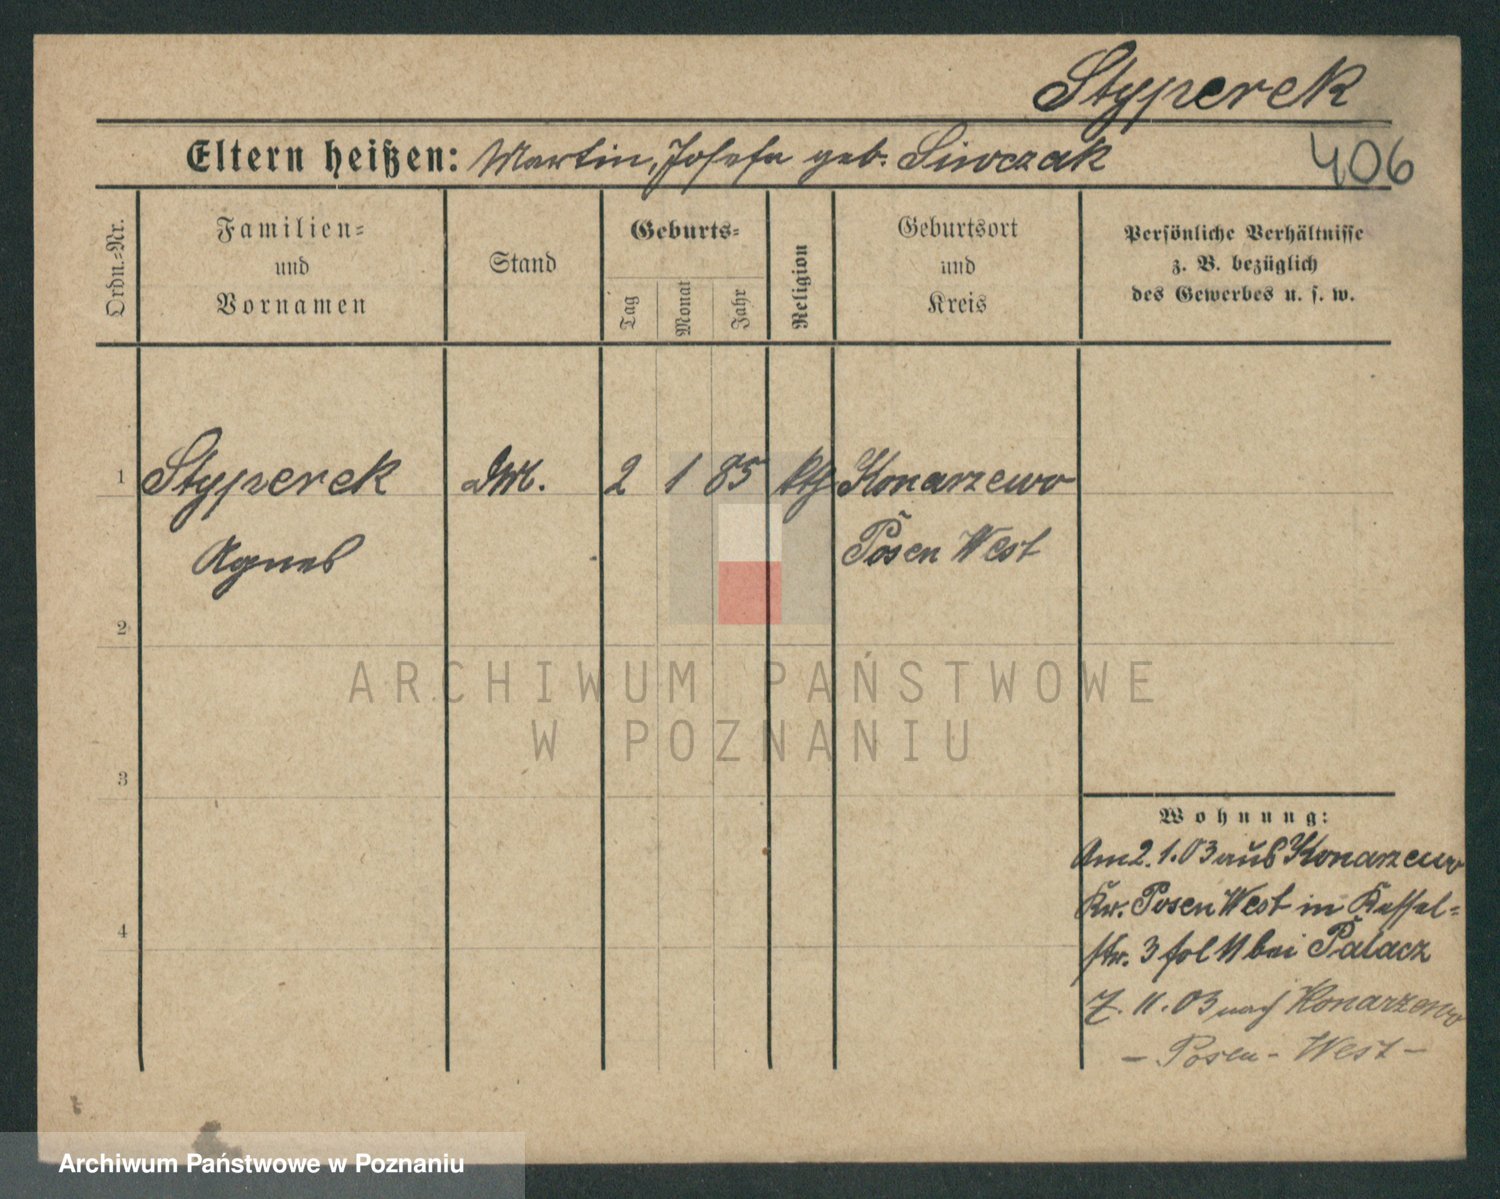 Styperek
Eltern heißen: Martin, Josefa geb. Siwczak
406
Ordn.-Nr.
Familien-
und
Vornamen
Stand
Geburts-
Tag
Monat
Jahr
Religion
Geburtsort
und
Kreis
Persönliche Verhältnisse
z. B. bezüglich
des Gewerbes u. s. w.
1 Styperek 2 1 85 kth Konarzewo
Agnes Posen West
2
3
4
Wohnung:
Am 2.1.03 aus Konarzewo
Kr. Posen West in Kessel-
str. 3 fol 11 bei Palacz
7. 11. 03 nach Konarzewo
- Posen - West -
ARCHIWUM PAŃSTWOWE
W POZNANIU
Archiwum Państwowe w Poznaniu